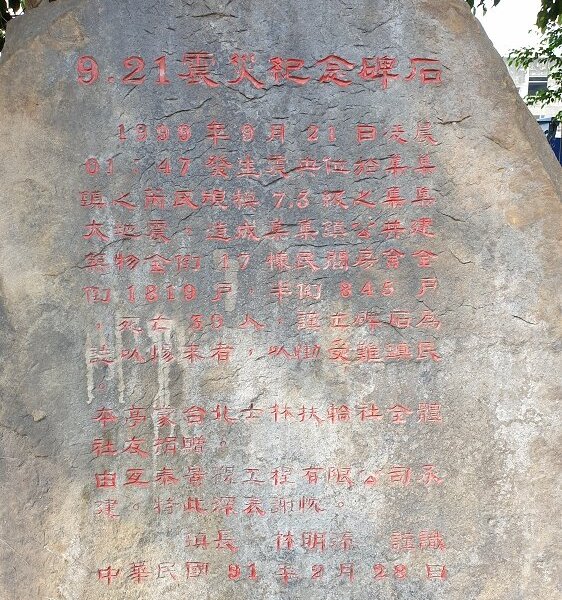 9.21震災紀念碑石
1999年9月21日凌晨
01:47發生震央位於集集
鎮之南民規模7.3級之集集
大地震,造成嘉集鎮公共建
築物全倒17棟民間房舍全
倒1819戶,半倒845戶
,死亡39人,謹立碑石為
誌以悼來者,以慟受難鎮民
。
本亭蒙台北士林扶輪社全體
社友捐贈。
由互泰景觀工程有限公司承
建。特此深表謝忱。
鎮長 林明溱 謹識
中華民國91年2月28日